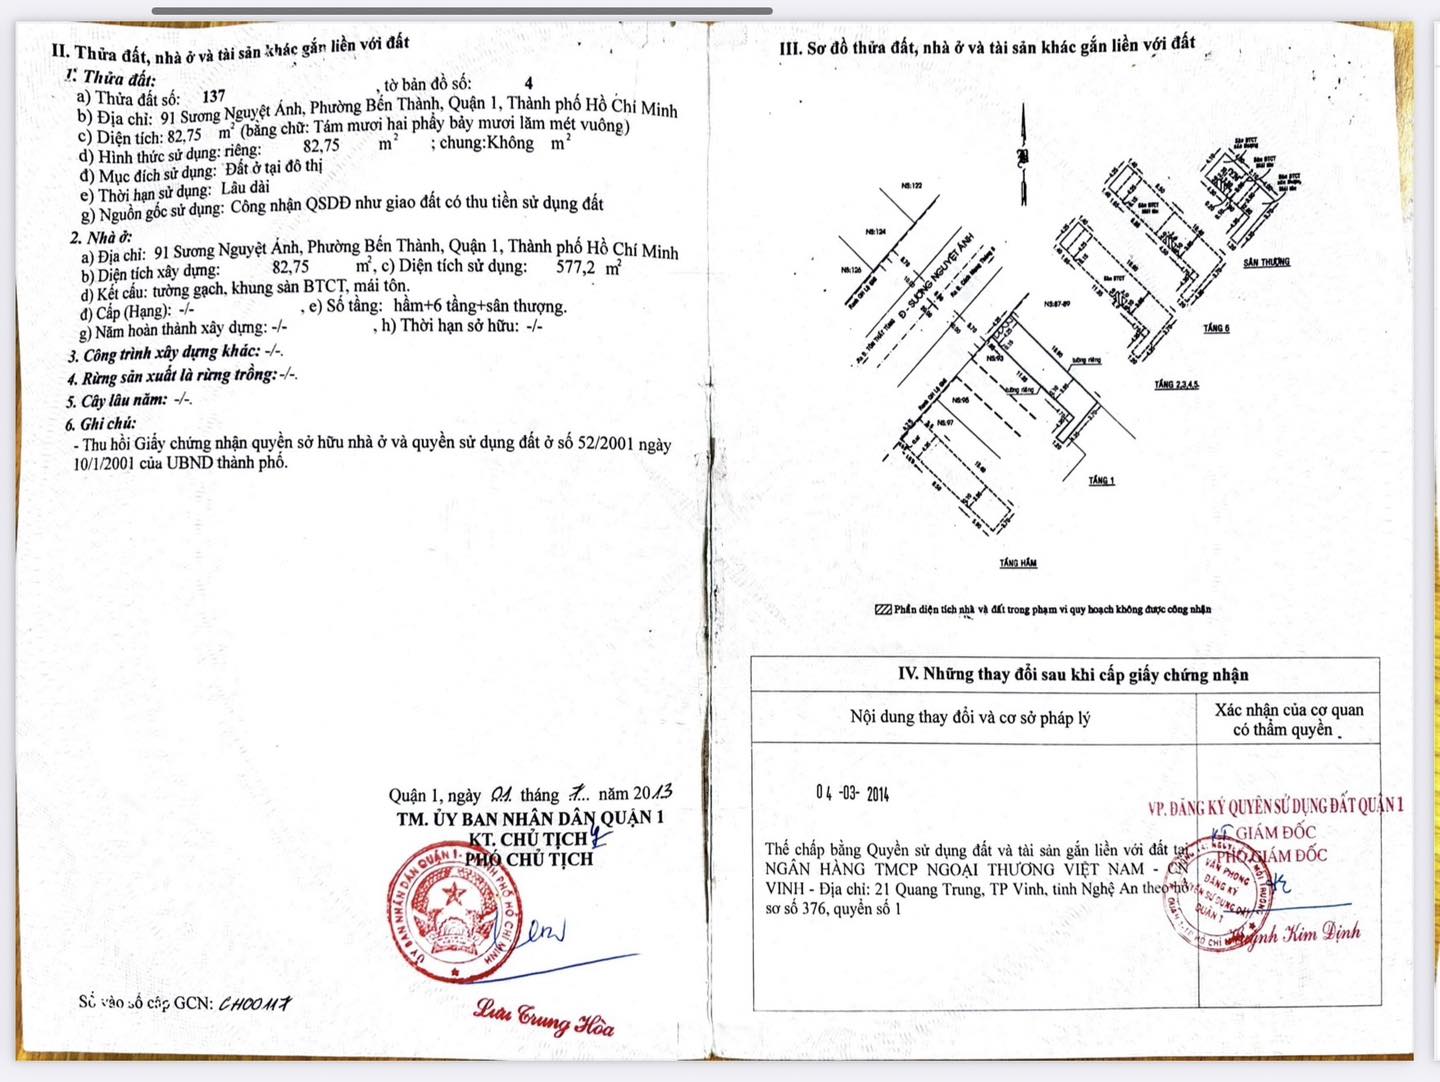 II. Thửa đất, nhà ở và tài sản khác gắn liền với đất
1. Thửa đất:
a) Thửa đất số: 137 , tờ bản đồ số: 4
b) Địa chỉ: 91 Sương Nguyệt Ánh, Phường Bến Thành, Quận 1, Thành phố Hồ Chí Minh
c) Diện tích: 82,75 m² (bằng chữ: Tám mươi hai phẩy bảy mươi lăm mét vuông)
d) Hình thức sử dụng: riêng: 82,75 m² ; chung:Không m²
đ) Mục đích sử dụng: Đất ở tại đô thị
e) Thời hạn sử dụng: Lâu dài
g) Nguồn gốc sử dụng: Công nhận QSDĐ như giao đất có thu tiền sử dụng đất
2. Nhà ở:
a) Địa chỉ: 91 Sương Nguyệt Ánh, Phường Bến Thành, Quận 1, Thành phố Hồ Chí Minh
b) Diện tích xây dựng: 82,75 m², c) Diện tích sử dụng: 577,2 m²
d) Kết cấu: tường gạch, khung sàn BTCT, mái tôn.
đ) Cấp (Hạng): -/- , e) Số tầng: hầm+6 tầng+sân thượng.
g) Năm hoàn thành xây dựng: -/- , h) Thời hạn sở hữu: -/-
3. Công trình xây dựng khác: -/-.
4. Rừng sản xuất là rừng trồng: -/-.
5. Cây lâu năm: -/-.
6. Ghi chú:
- Thu hồi Giấy chứng nhận quyền sở hữu nhà ở và quyền sử dụng đất ở số 52/2001 ngày
10/1/2001 của UBND thành phố.
Quận 1, ngày 01 tháng 7... năm 2013
TM. ỦY BAN NHÂN DÂN QUẬN 1
KT. CHỦ TỊCH
PHÓ CHỦ TỊCH
ỦY BAN NHÂN DÂN QUẬN 1 - THÀNH PHỐ HỒ CHÍ MINH
Lưu Trung Hòa
Số vào sổ cấp GCN: CH00117
III. Sơ đồ thửa đất, nhà ở và tài sản khác gắn liền với đất
NS:122
NS:124
NS:126
Đ - SƯƠNG NGUYỆT ÁNH
NS:87-89
NS:93
NS:95
NS:97
tường riêng
tường riêng
SÂN THƯỢNG
TẦNG 6
TẦNG 2,3,4,5
TẦNG 1
TẦNG HẦM
Phần diện tích nhà và đất trong phạm vi quy hoạch không được công nhận
IV. Những thay đổi sau khi cấp giấy chứng nhận
Nội dung thay đổi và cơ sở pháp lý
Xác nhận của cơ quan
có thẩm quyền
04 -03- 2014
Thế chấp bằng Quyền sử dụng đất và tài sản gắn liền với đất tại
NGÂN HÀNG TMCP NGOẠI THƯƠNG VIỆT NAM - CN
VINH - Địa chỉ: 21 Quang Trung, TP Vinh, tỉnh Nghệ An theo hồ
sơ số 376, quyển số 1
VP. ĐĂNG KÝ QUYỀN SỬ DỤNG ĐẤT QUẬN 1
KT GIÁM ĐỐC
PHÓ GIÁM ĐỐC
VĂN PHÒNG
ĐĂNG KÝ
QUYỀN SỬ DỤNG ĐẤT
QUẬN 1
Huỳnh Kim Định